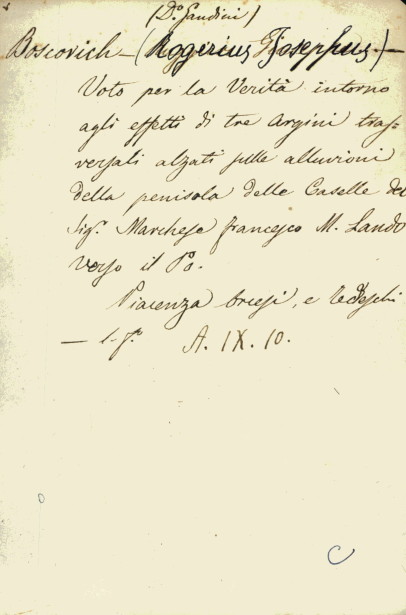 (D.º Gandini)
Boscovich — (Rogerius Josephus) —
Voto per la Verità intorno
agli effetti di tre argini tras=
versali alzati sulle alluvioni
della penisola delle Caselle del
Sig.r Marchese Francesco M. Lando
verso il Po.
Piacenza Orcesi, e Tedeschi
— A. IX. 10.
C